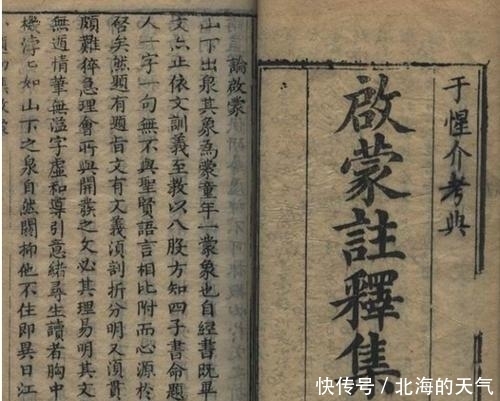 于惺介考典
啟蒙註釋集
論啟蒙
山下出泉其象為蒙童年一蒙象也自經書既畢
文亦止依文訓義至教以八股方知四子書命題
人一字一句無不與聖賢語言相比附而心源於
啓矣然題有題旨文有文義湏剖折分明又湏貫
頗難猝急理會所與開發之文必其理易明其文
無遁情華無溢字虛和導引意緒尋生讀者胸中
機浡〻如山下之泉自然關抑他不住即異日江
快传号／北海的天气